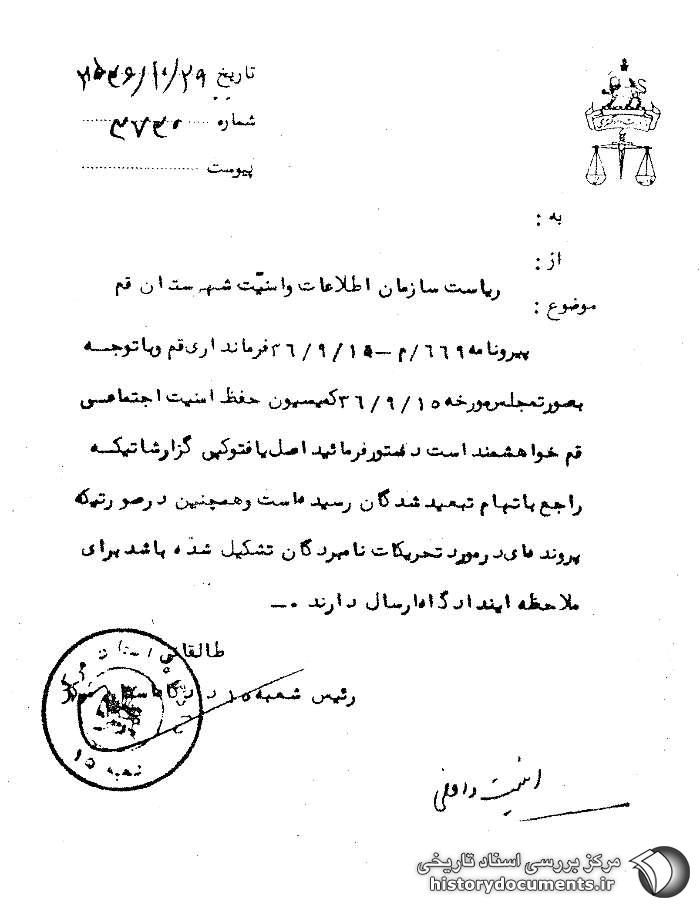 تاریخ ۲۵۳۶/۱۰/۲۹
شماره ۳۷۳۰
پیوست
به :
از :
موضوع :
ریاست سازمان اطلاعات وامنیّت شهرستان قم
پیرونامه ۶۶۹/م – ۳۶/۹/۱۵ فرمانداری قم وباتوجه
بصورتمجلس مورخه ۳۶/۹/۱۵ کمیسیون حفظ امنیت اجتماعی
قم خواهشمند است دستور فرمائید اصل یا فتوکپی گزارشاتیکه
راجع باتهام تبعید شدگان رسیده است وهمچنین در صورتیکه
پرونده ای در مورد تحریکات نامبردگان تشکیل شده باشد برای
ملاحظه این دادگاه ارسال دارند .–
طالقانی
رئیس شعبه ۱۵ دادگاه استان مرکز
شعبه ۱۵
امنیت داخلی
مرکز بررسی اسناد تاریخی
historydocuments.ir